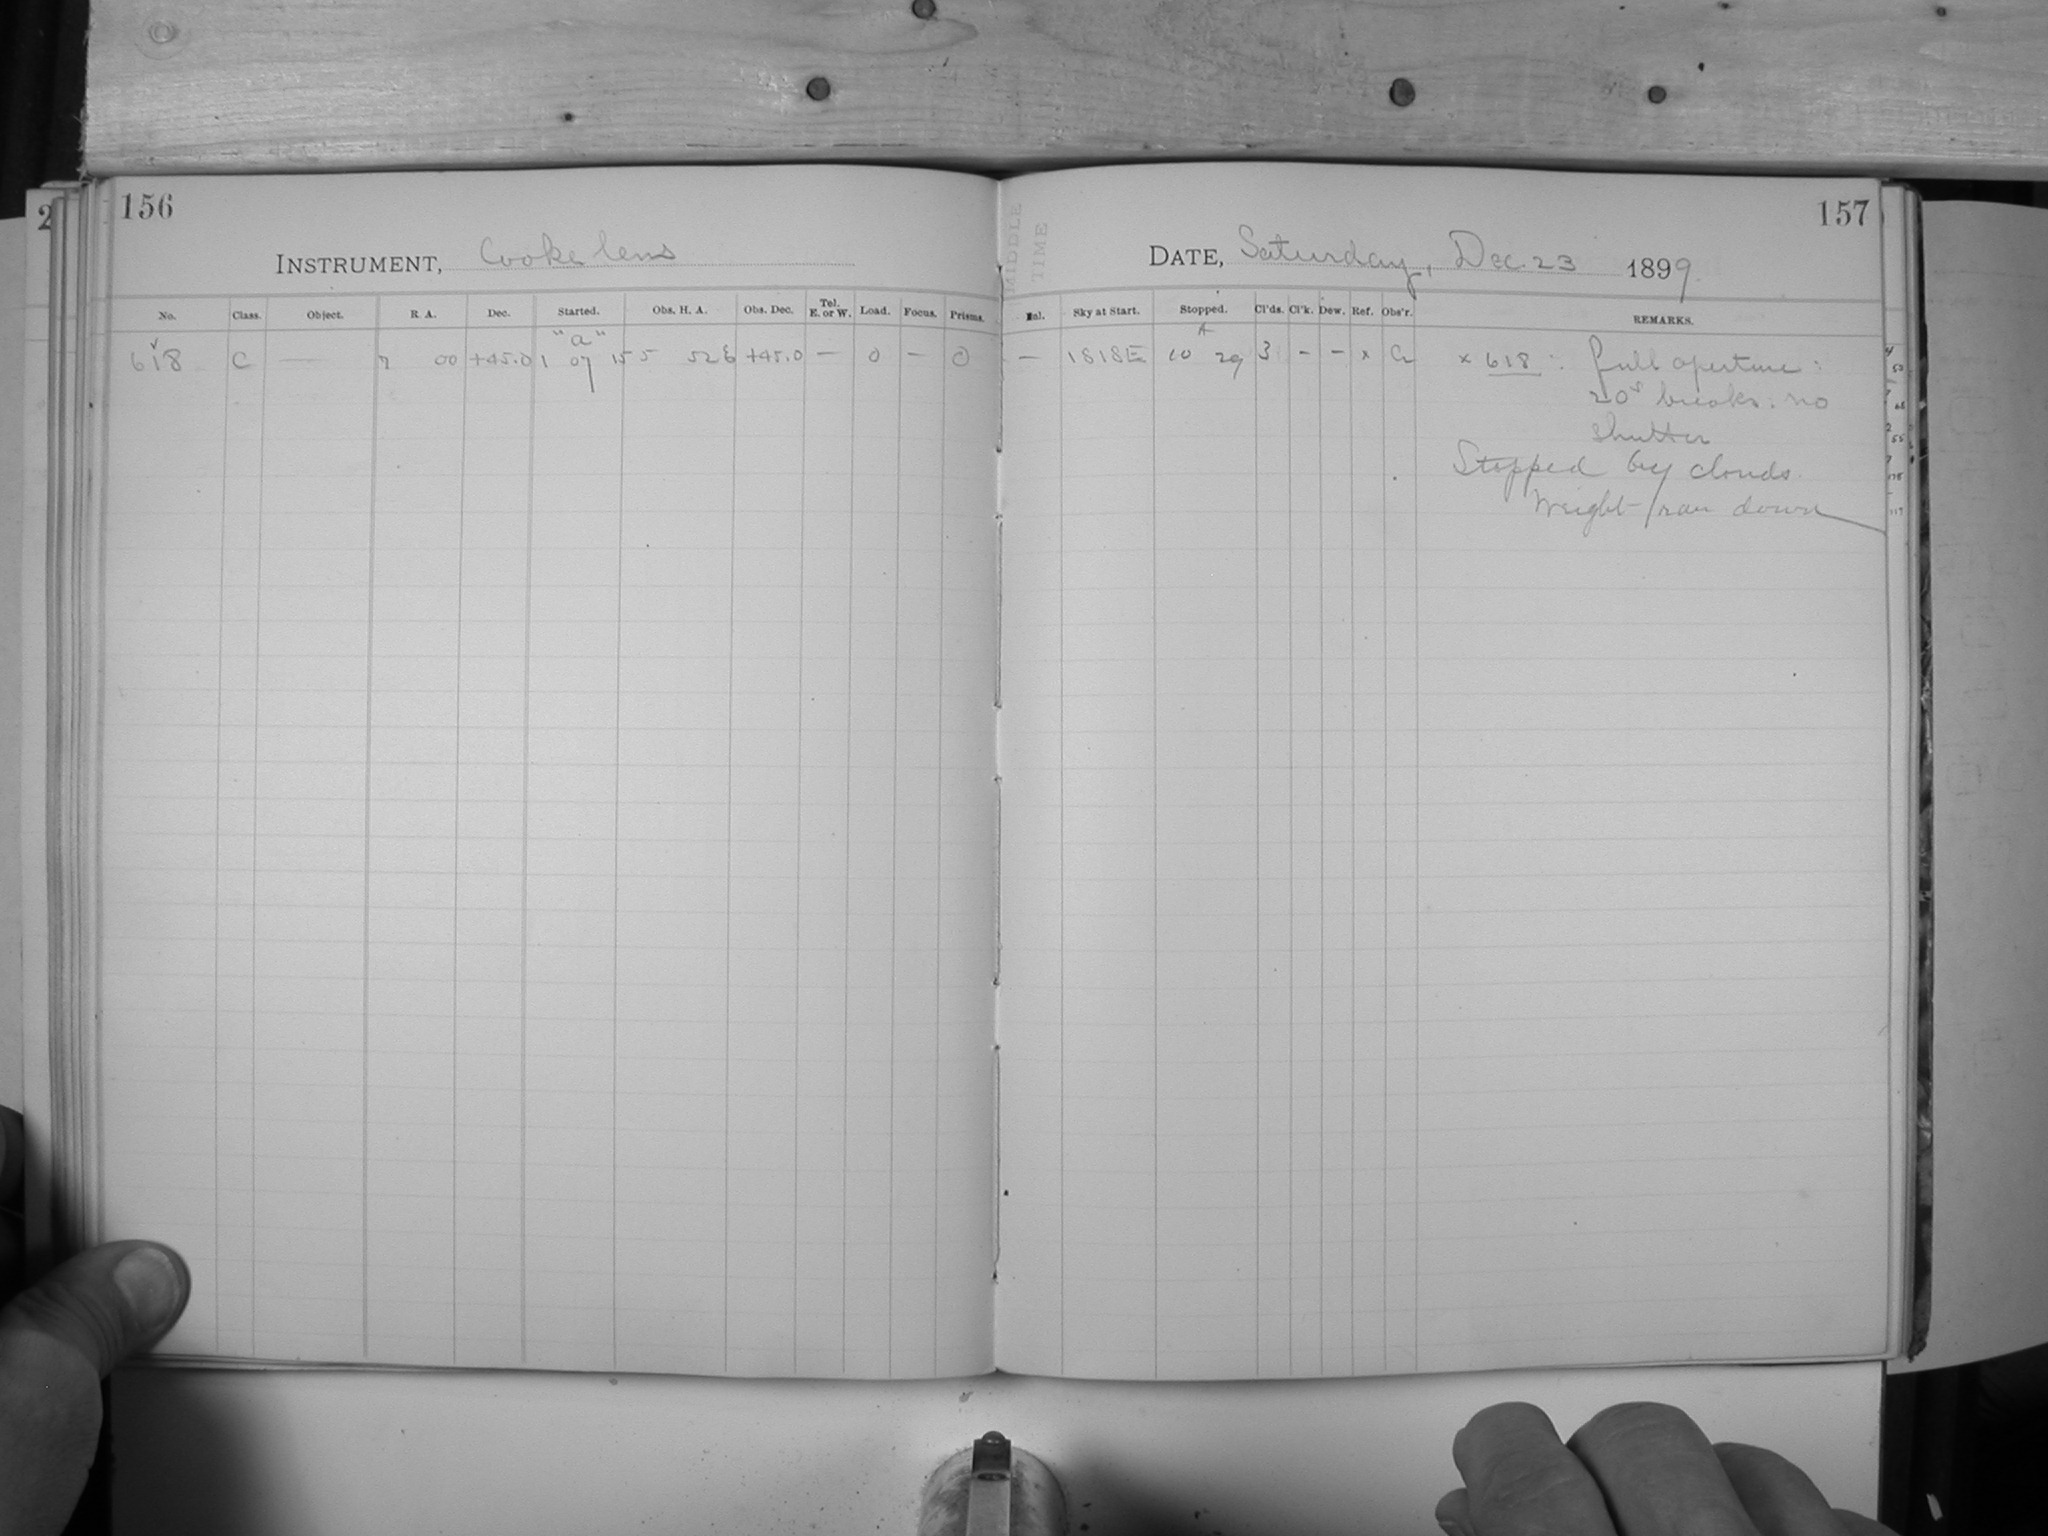 156
INSTRUMENT, Cooke lens
No. Class. Object. R. A. Dec. Started. Obs. H. A. Obs. Dec. Tel. E. or W. Load. Focus. Prisms.
"a"
618 C — 7 00 +45.0 1 07 15 5 52 E +45.0 — 0 — 0
MIDDLE
TIME
157
DATE, Saturday, Dec. 23 1899
Sky at Start. Stopped. Cl'ds. Cl'k. Dew. Ref. Obs'r. REMARKS.
— 1818E 10 29 3 - - x x 618 : full aperture :
20s breaks : no
shutter
Stopped by clouds.
Weight ran down